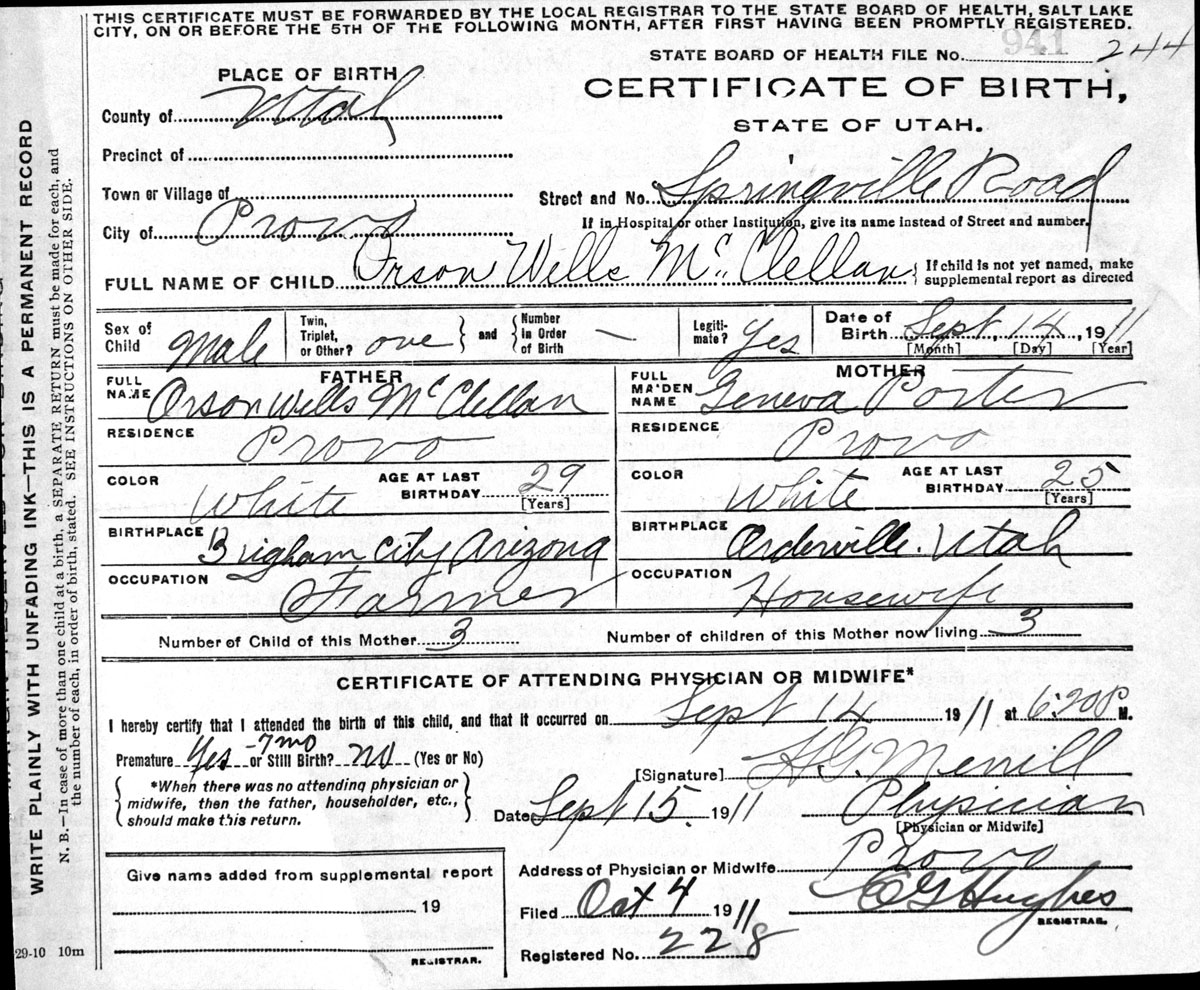 THIS CERTIFICATE MUST BE FORWARDED BY THE LOCAL REGISTRAR TO THE STATE BOARD OF HEALTH, SALT LAKE
CITY, ON OR BEFORE THE 5TH OF THE FOLLOWING MONTH, AFTER FIRST HAVING BEEN PROMPTLY REGISTERED.
STATE BOARD OF HEALTH FILE No. 941 244
PLACE OF BIRTH
CERTIFICATE OF BIRTH,
County of Utah
STATE OF UTAH.
Precinct of
Town or Village of
Street and No. Springville Road
City of Provo
If in Hospital or other Institution, give its name instead of Street and number.
FULL NAME OF CHILD Orson Wells McClellan { If child is not yet named, make
supplemental report as directed
Sex of Child Male
Twin, Triplet, or Other? one } and { Number in Order of Birth —
Legiti-mate? Yes
Date of Birth Sept 14, 1911
[Month] [Day] [Year]
FATHER
FULL NAME Orson Wells McClellan
RESIDENCE Provo
COLOR White AGE AT LAST BIRTHDAY 29 [Years]
BIRTHPLACE Brigham City Arizona
OCCUPATION Farmer
MOTHER
FULL MAIDEN NAME Geneva Porter
RESIDENCE Provo
COLOR White AGE AT LAST BIRTHDAY 25 [Years]
BIRTHPLACE Orderville. Utah
OCCUPATION Housewife
Number of Child of this Mother 3 Number of children of this Mother now living 3
CERTIFICATE OF ATTENDING PHYSICIAN OR MIDWIFE*
I hereby certify that I attended the birth of this child, and that it occurred on Sept 14 1911 at 6:20 P M.
Premature Yes - 7 mo or Still Birth? no (Yes or No)
[Signature] H.G. Merrill
{ *When there was no attending physician or
midwife, then the father, householder, etc.,
should make this return. }
Date Sept 15. 1911 Physician
[Physician or Midwife]
Give name added from supplemental report
19
REGISTRAR.
Address of Physician or Midwife Provo
Filed Oct 4 1911 Hughes
REGISTRAR.
Registered No. 228
29-10 10m
WRITE PLAINLY WITH UNFADING INK—THIS IS A PERMANENT RECORD
N. B.—In case of more than one child at a birth, a SEPARATE RETURN must be made for each, and
the number of each, in order of birth, stated. SEE INSTRUCTIONS ON OTHER SIDE.